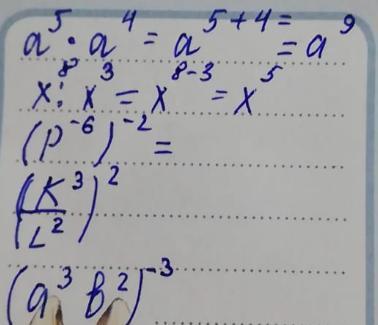 a⁵ · a⁴ = a⁵⁺⁴ = = a⁹
x⁸ : x³ = x⁸⁻³ = x⁵
(p⁻⁶)⁻² =
(K³/L²)²
(a³ b²)⁻³